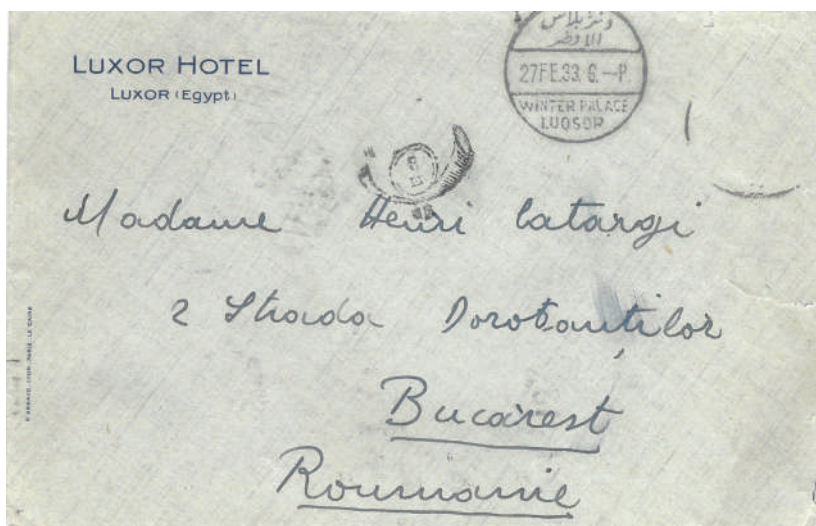 LUXOR HOTEL
LUXOR (Egypt)
ونتر بلاس
الاقصر
27 FE.33. 6.–P.
WINTER PALACE
LUQSOR
Madame Henri Catargi
2 Strada Dorobanților
Bucarest
Roumanie